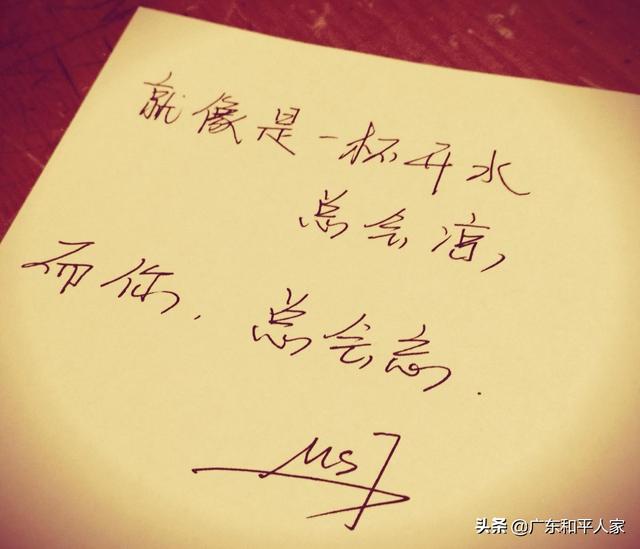 就像是一杯开水
总会凉,
而你.总会忘.
头条 @广东和平人家